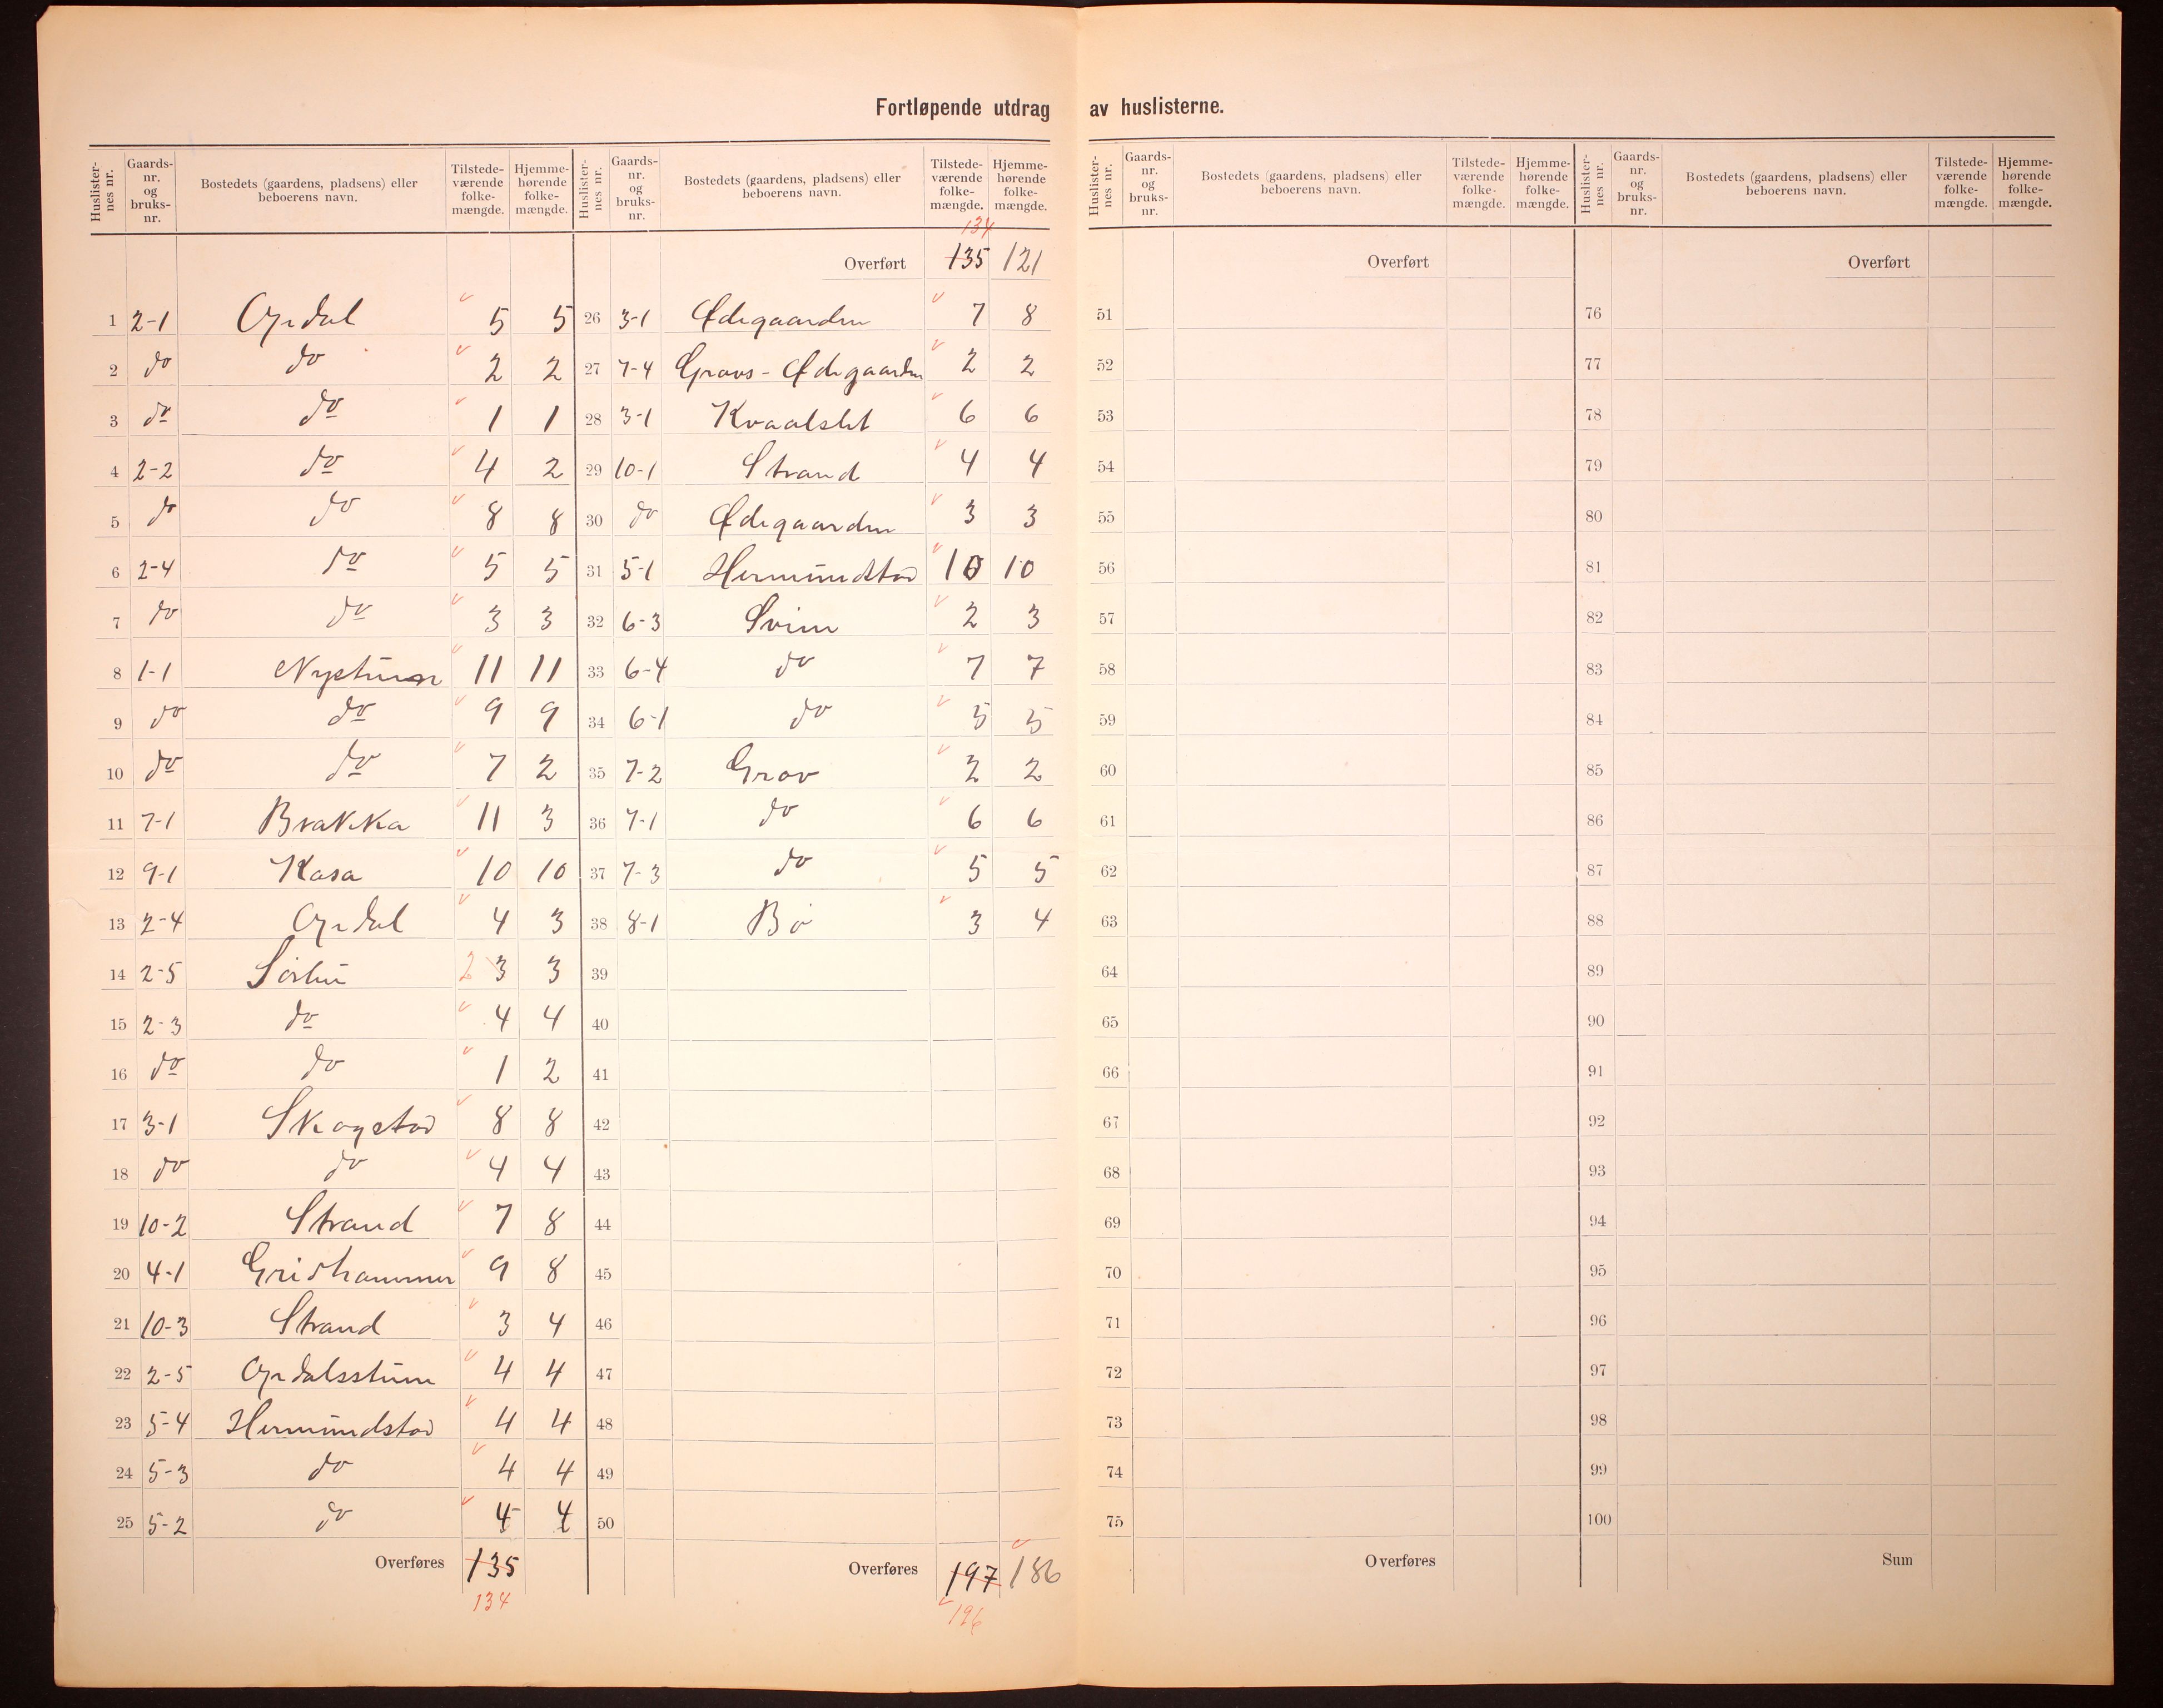 Fortløpende utdrag av huslisterne.
Huslister-nes nr. Gaards-nr. og bruks-nr. Bostedets (gaardens, pladsens) eller beboerens navn. Tilstede-værende folke-mængde. Hjemme-hørende folke-mængde.
1 2-1 Opdal 5 5
2 do do 2 2
3 do do 1 1
4 2-2 do 4 2
5 do do 8 8
6 2-4 do 5 5
7 do do 3 3
8 1-1 Nystuen 11 11
9 do do 9 9
10 do do 7 2
11 7-1 Brakka 11 3
12 9-1 Kasa 10 10
13 2-4 Opdal 4 3
14 2-5 Sørtun 2 3 3
15 2-3 do 4 4
16 do do 1 2
17 3-1 Skogstad 8 8
18 do do 4 4
19 10-2 Strand 7 8
20 4-1 Grishammer 9 8
21 10-3 Strand 3 4
22 2-5 Opdalsstuen 4 4
23 5-4 Hermundstad 4 4
24 5-3 do 4 4
25 5-2 do 4 4
Overføres 135
134
Huslister-nes nr. Gaards-nr. og bruks-nr. Bostedets (gaardens, pladsens) eller beboerens navn. Tilstede-værende folke-mængde. Hjemme-hørende folke-mængde.
134
Overført 135 121
26 3-1 Ødegaarden 7 8
27 7-4 Gravs-Ødegaarden 2 2
28 3-1 Kvaalslet 6 6
29 10-1 Strand 4 4
30 do Ødegaarden 3 3
31 5-1 Hermundstad 10 10
32 6-3 Svien 2 3
33 6-4 do 7 7
34 6-1 do 5 5
35 7-2 Grov 2 2
36 7-1 do 6 6
37 7-3 do 5 5
38 8-1 Bø 3 4
39
40
41
42
43
44
45
46
47
48
49
50
Overføres 197 186
196
Huslister-nes nr. Gaards-nr. og bruks-nr. Bostedets (gaardens, pladsens) eller beboerens navn. Tilstede-værende folke-mængde. Hjemme-hørende folke-mængde.
Overført
51
52
53
54
55
56
57
58
59
60
61
62
63
64
65
66
67
68
69
70
71
72
73
74
75
Overføres
Huslister-nes nr. Gaards-nr. og bruks-nr. Bostedets (gaardens, pladsens) eller beboerens navn. Tilstede-værende folke-mængde. Hjemme-hørende folke-mængde.
Overført
76
77
78
79
80
81
82
83
84
85
86
87
88
89
90
91
92
93
94
95
96
97
98
99
100
Sum